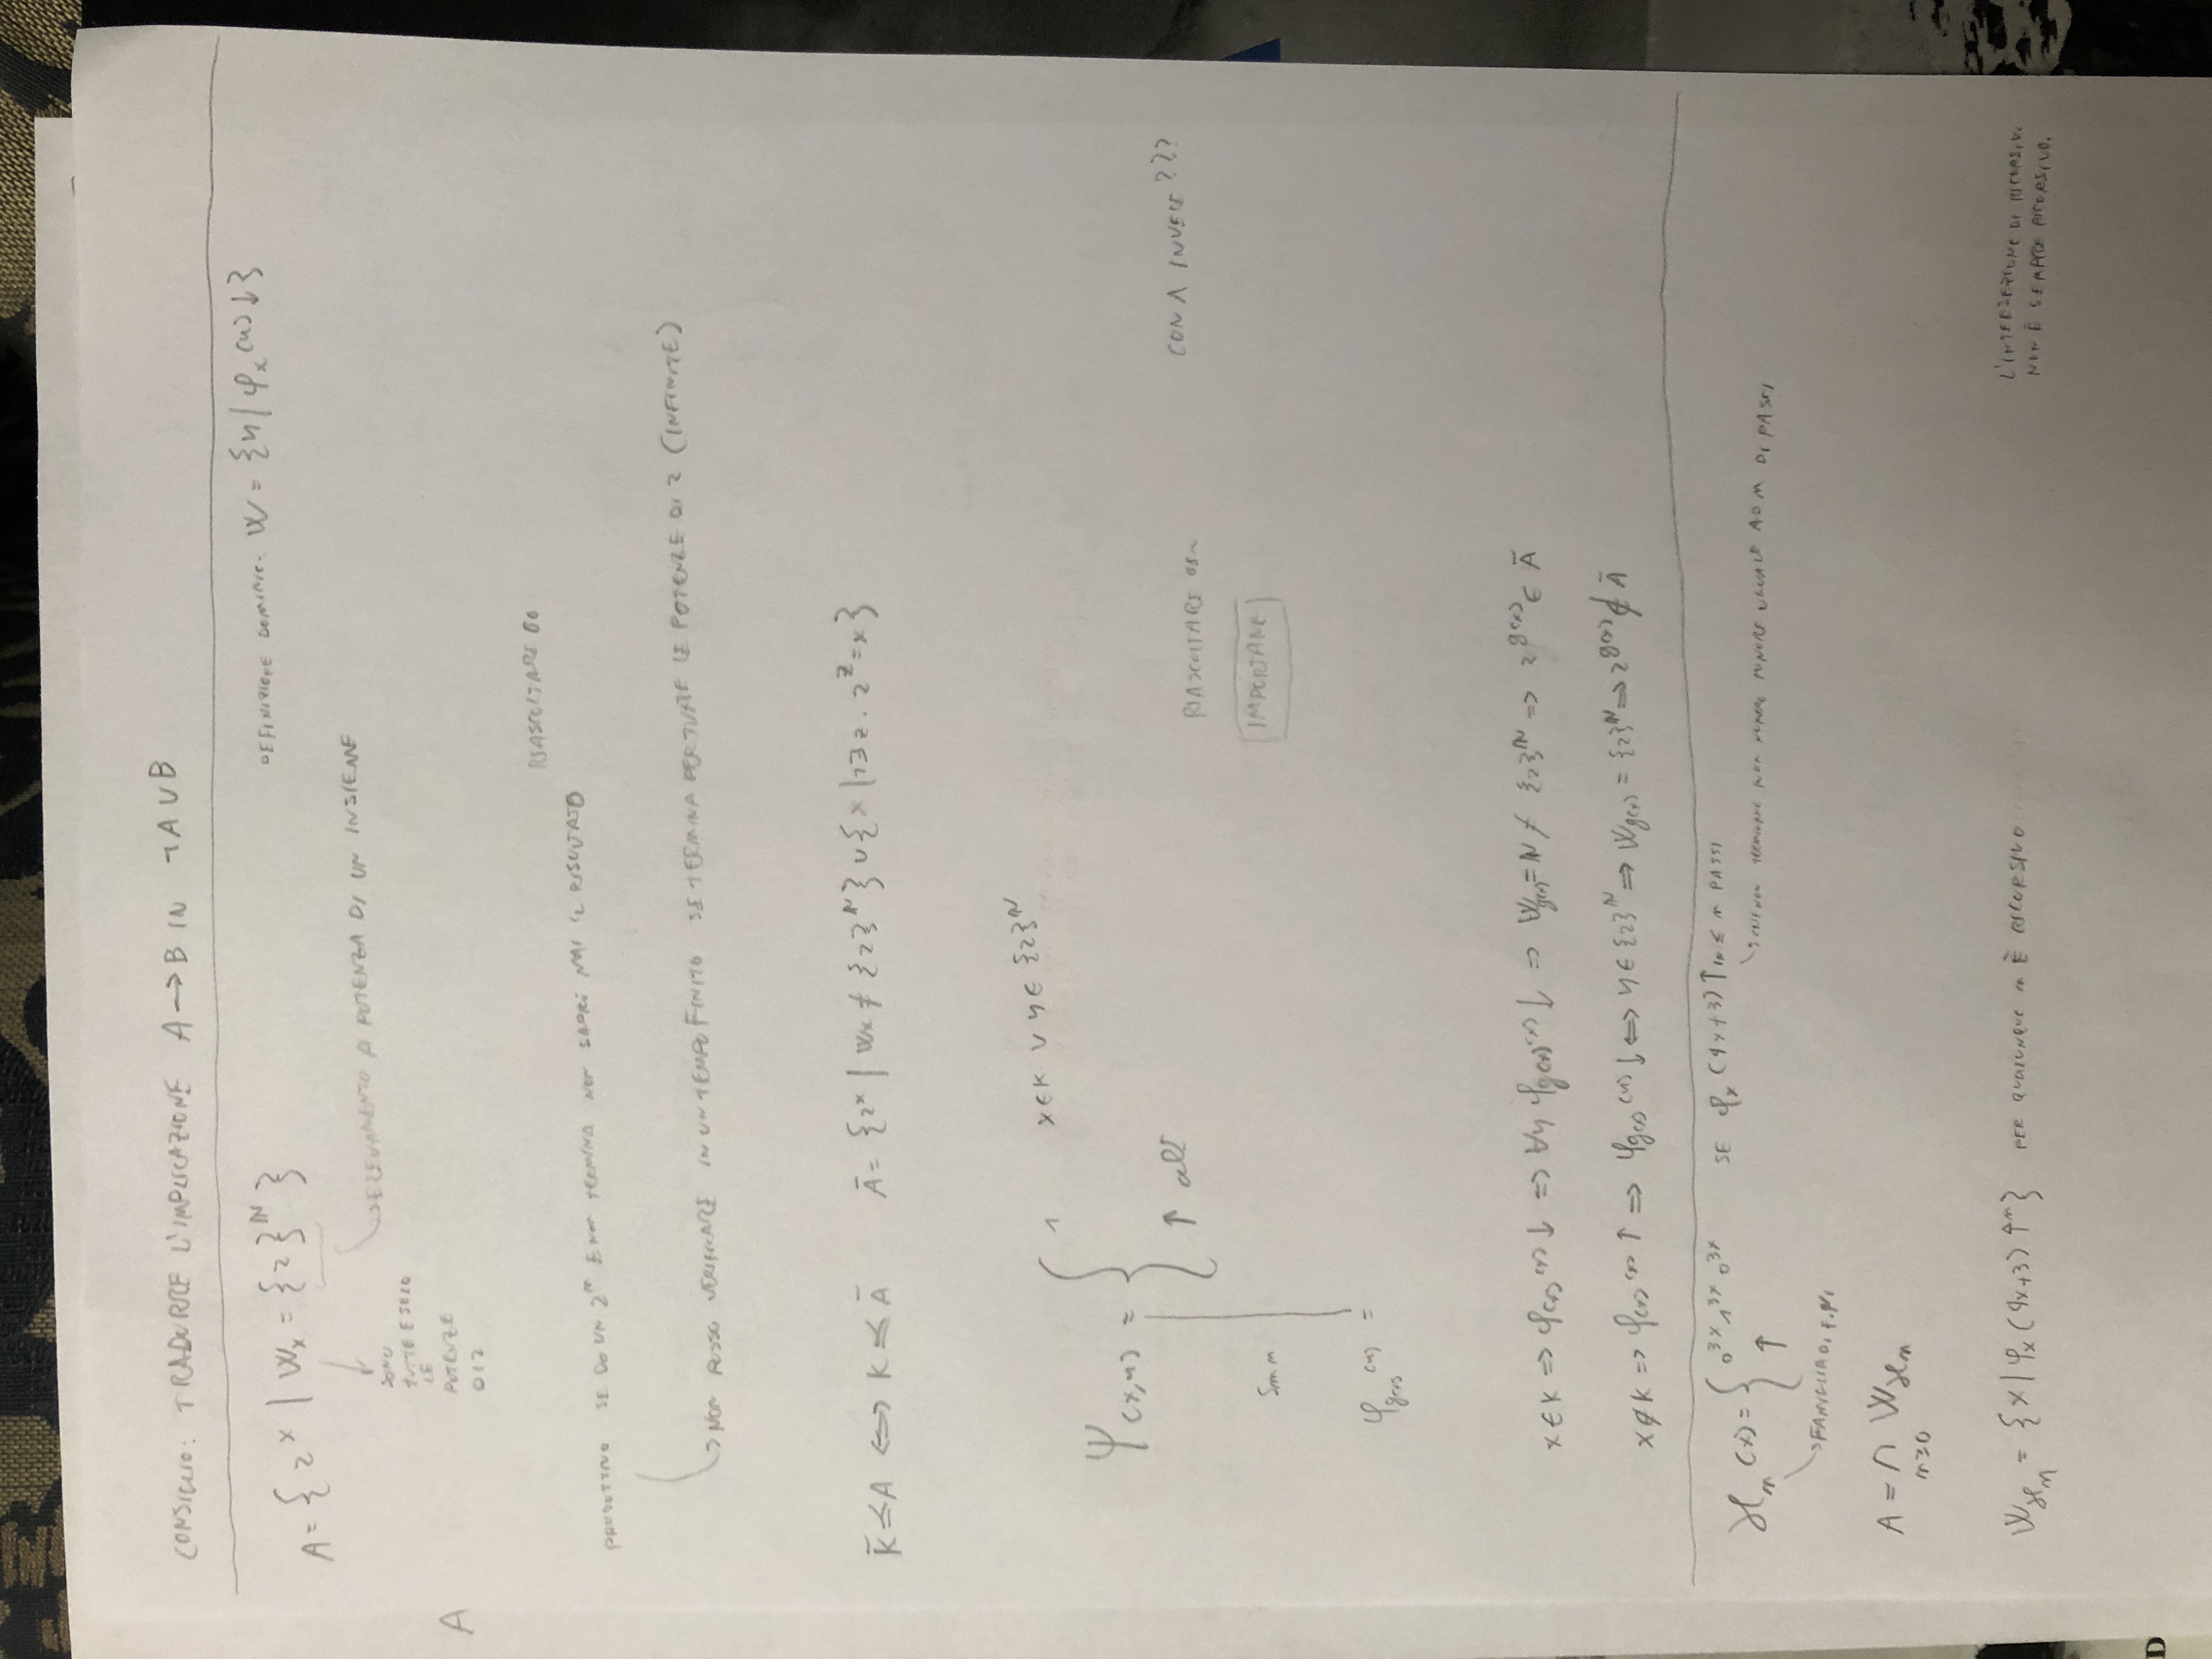 CONSIGLIO: TRADURRE L'IMPLICAZIONE A → B IN ¬A ∪ B
A = { 2^x | W_x = {2}^ℕ }
DEFINIZIONE DOMINIO: W = {y | φ_x(y) ↓}
ELEVAMENTO A POTENZA DI UN INSIEME
SONO
TUTTE E SOLO
LE
POTENZE
DI 2
A
RIASCOLTARE
PRODUTTIVO SE DO UN 2^n E NON TERMINA NON SAPRÒ MAI IL RISULTATO
→ NON POSSO VERIFICARE IN UN TEMPO FINITO SE TERMINA PER TUTTE LE POTENZE DI 2 (INFINITE)
K̄ ≤ A ⟺ K ≤ Ā Ā = {2^x | W_x ≠ {2}^ℕ} ∪ {x | ¬∃z. 2^z = x}
1 x ∈ K ∨ y ∈ {2}^ℕ
Ψ(x,y) = {
↑ alt
CON ∧ INVECE ???
RIASCOLTARE
IMPORTANE
Smn
φ_g(x)(y) =
x ∈ K ⇒ φ(x)(x) ↓ ⇒ ∀y φ_g(x)(x) ↓ ⇒ W_g(x) = ℕ ≠ {2}^ℕ ⇒ 2^g(x) ∈ Ā
x ∉ K ⇒ φ(x)(x) ↑ ⇒ φ_g(x)(y) ↓ ⟺ y ∈ {2}^ℕ ⇒ W_g(x) = {2}^ℕ ⇒ 2^g(x) ∉ Ā
ℋ_n(x) = { 0^3x 1^3x 0^3x SE φ_x(4x+3) ↑ IN ≤ n PASSI
↑
NON TERMINANO NUMERO MINORE UGUALE AD n DI PASSI
→ FAMIGLIA DI
A = ∩ W_ℋn
n≥0
W_ℋn = {x | φ_x(4x+3) ↑^n} PER QUALUNQUE n È RICORSIVO
L'INTERSEZIONE DI RICORSIVI
NON È SEMPRE RICORSIVO.
D